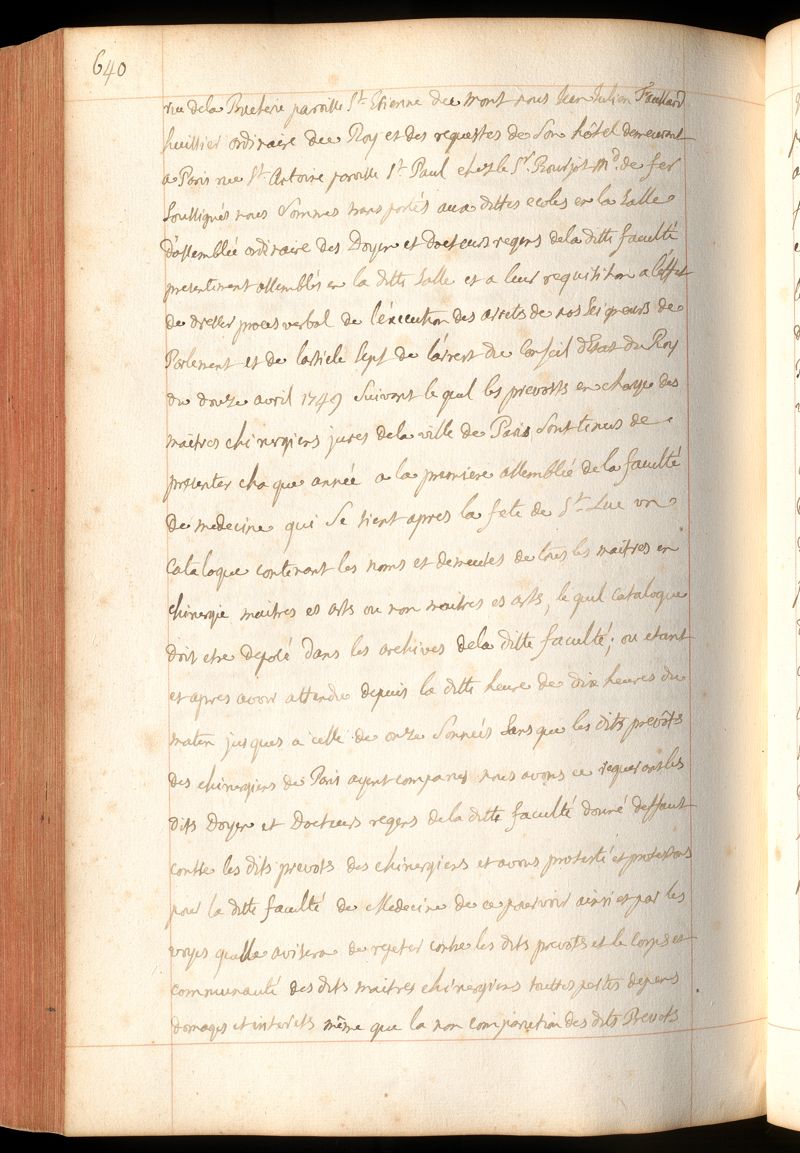 640
rue de la Bucherie paroisse St Etienne du mont nous Jean Julien
huissier ordinaire du Roy et des requestes de son hôtel demeurant
a Paris rue St Antoine paroisse St Paul chez le Sr Bourjot md de fer
soussignés nous sommes transportés aux dittes ecoles en la salle
d'assemblée ordinaire des Doyen et docteurs regens de la ditte faculté
presentement assemblés en la ditte salle et a leur requisition a l'effet
de dresser proces verbal de l'éxecution des arrets de nos seigneurs de
Parlement et de l'article sept de l'arrest du Conseil d'Etat du Roy
du douze avril 1749 suivant le quel les prevosts en charge des
maitres chirurgiens jures de la ville de Paris sont tenus de
presenter chaque année a la premiere assemblée de la faculté
de medecine qui se tient apres la fete de St Luc un
Catalogue contenant les noms et demeures de tous les maitres en
chirurgie maitres es arts ou non maitres es arts, le quel catalogue
doit etre deposé dans les archives de la ditte faculté; ou etant
et apres avoir attendu depuis la ditte heure de dix heures du
matin jusques a celle de onze sonnées sans que les dits prevôts
des chirurgiens de Paris ayent comparus nous avons ce requerant les
dits Doyen et Docteurs regens de la ditte faculté donné deffaut
contre les dits prevots des chirurgiens et avons protesté et protestons
pour la ditte faculté de Medecine de ce pourvoir ainsi et par les
voyes qu'elle avisera de repeter contre les dits prevots et le Corps et
communauté des dits maitres chirurgiens touttes pertes depens
domages et interets même que la non comparution des dits Prevots